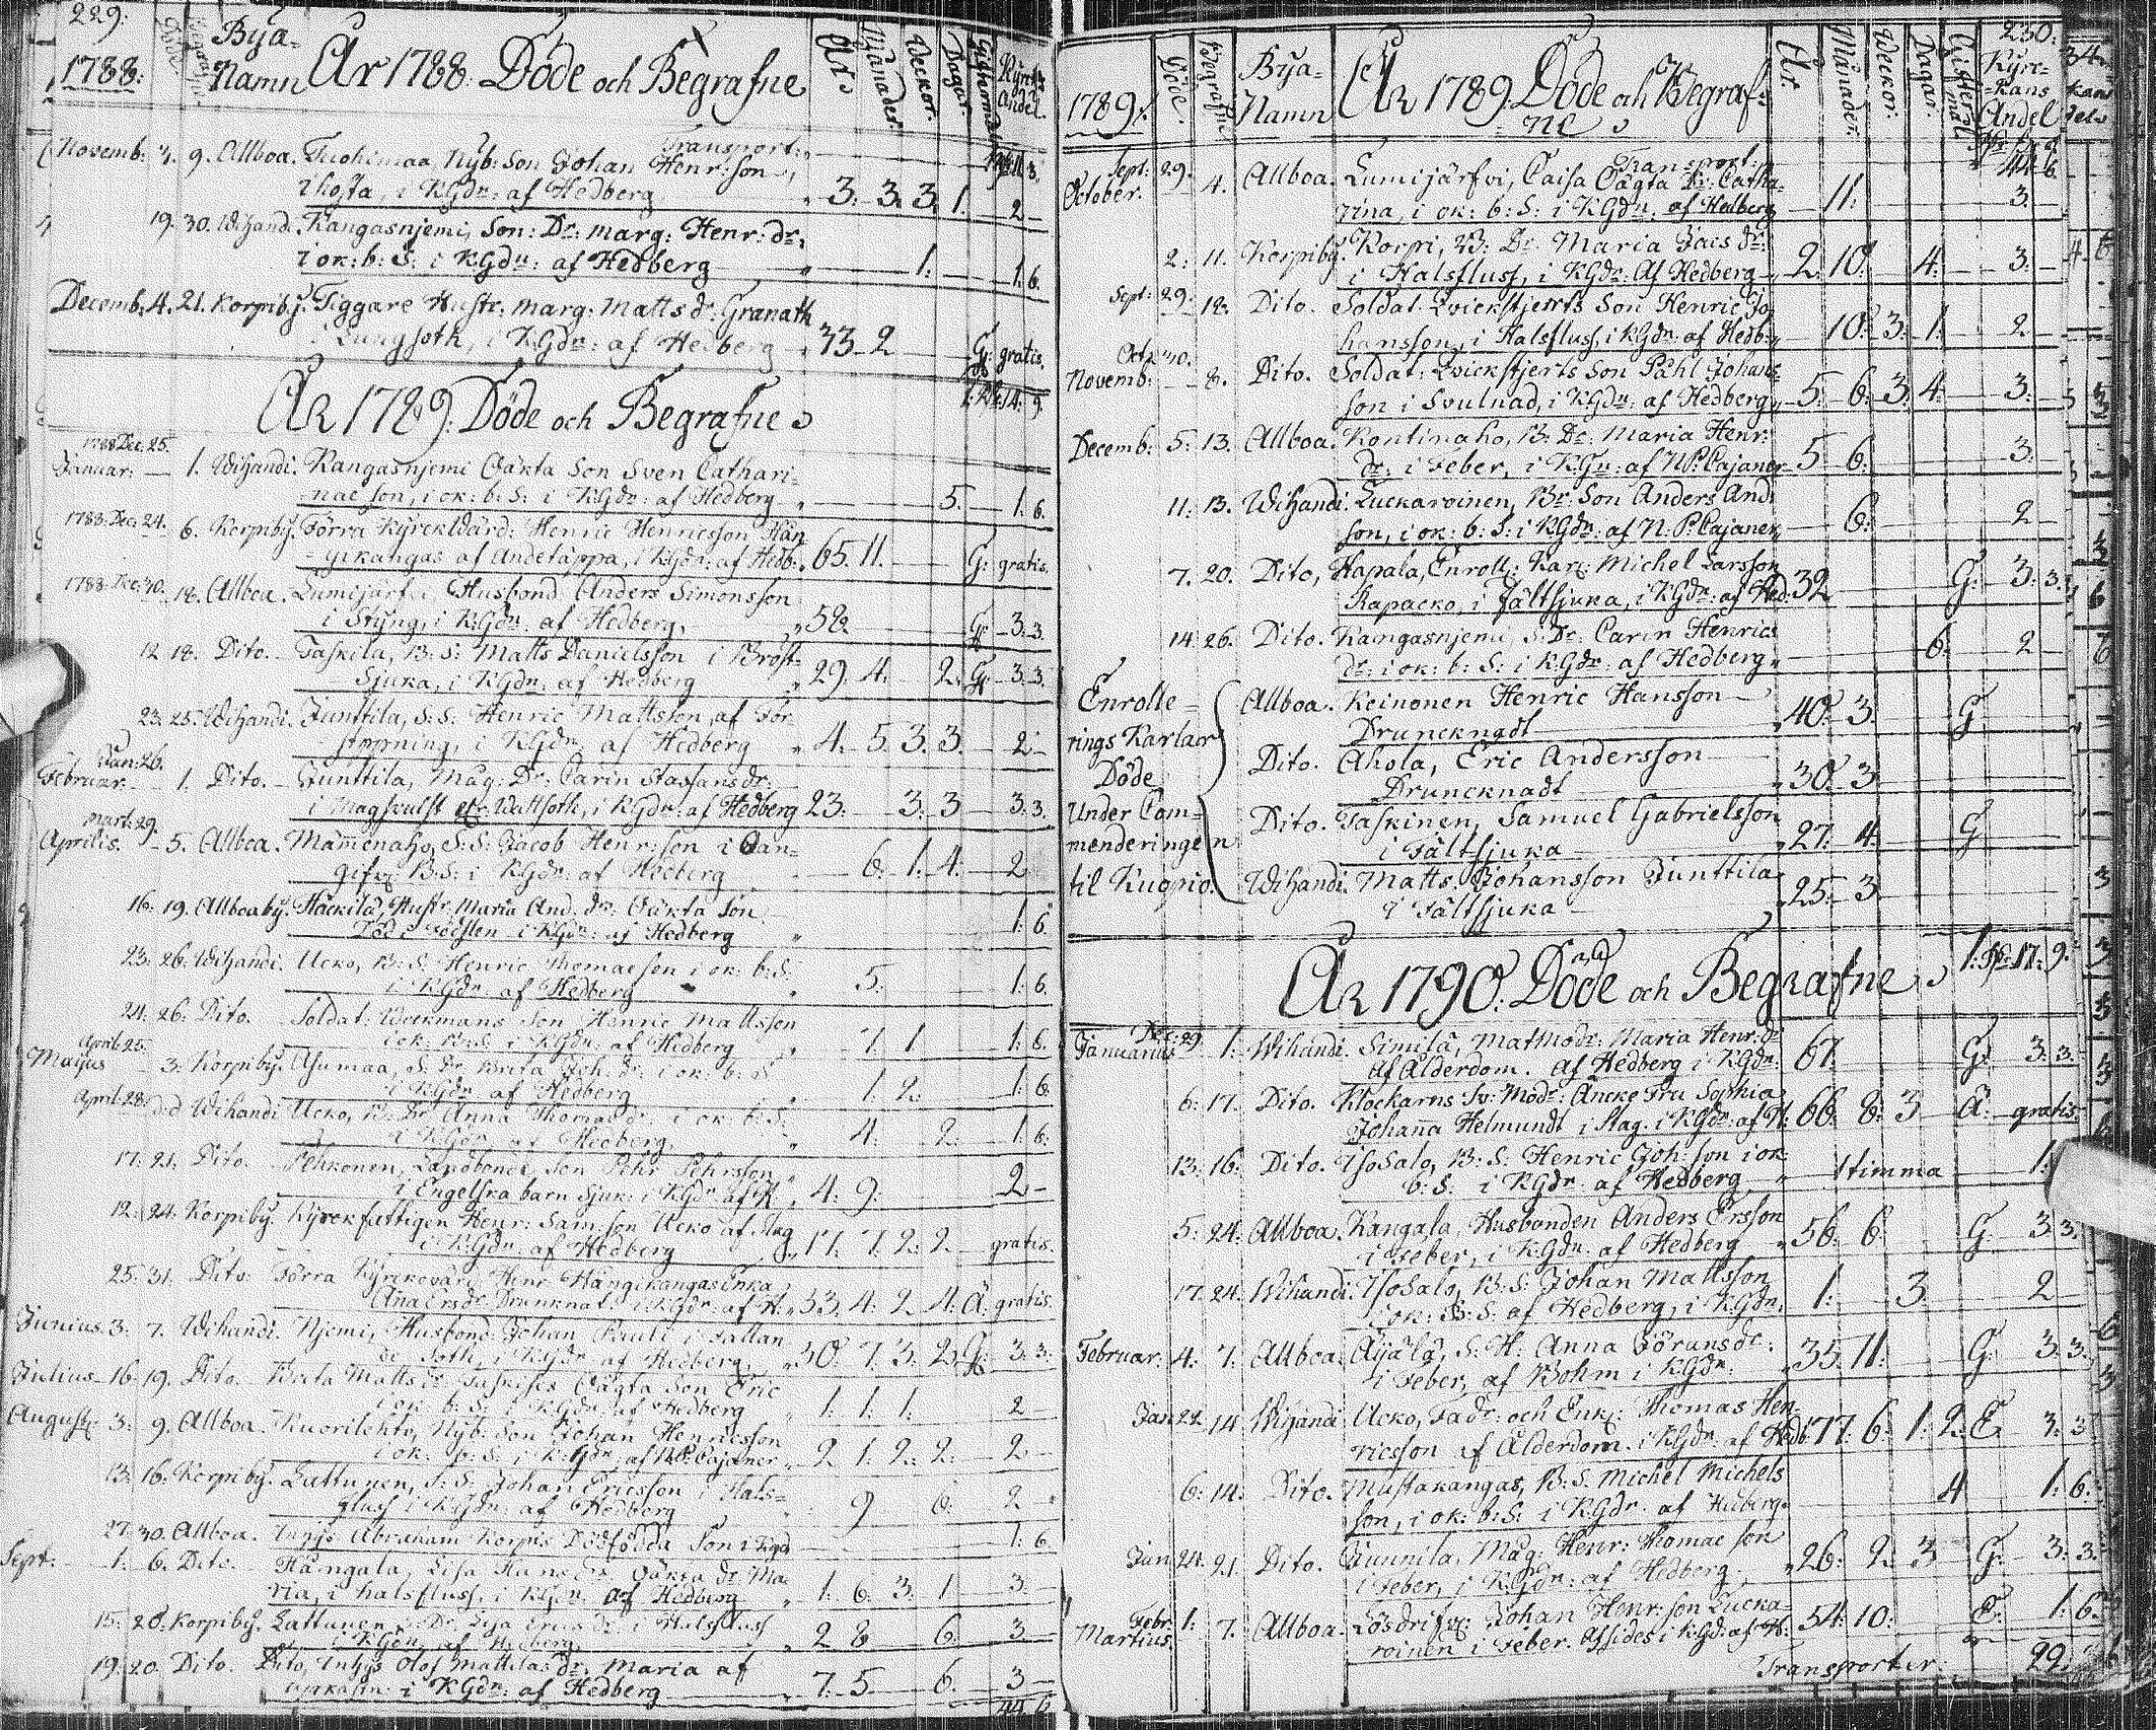 229.
1788. Döde. Begrafn. Bya= Namn År 1788: Döde och Begrafne År Månader. Weckor. Dagar. Kyrck. Andel.
Transport:
Novemb: 9. Allboa. Tuohimaa, Nyb: Son Johan Henr:son,
i hosta, i KGdn: af Hedberg 3. 3. 3. 1. 2
19. 30. Wihandi. Kangasnjemi, Son: Dr: marg: Henr: dr:
i ok: b: S: i KGdn: af Hedberg 1. 1. 6.
Decemb. 4. 21. Korpiby. Tiggare Hustr. marg: Matts dr: Granath
i Lungsoth, i KGdn: af Hedberg 73. 2 G: gratis.
14: 9.
År 1789: Döde och Begrafne
1788 Dec: 25.
Januar: 1. Wihandi. Kangasnjemi Oäkta Son Sven Cathari=
nae son, i ok: b: S: i KGdn: af Hedberg 5. 1. 6.
1788. Dec: 24. 6. Korpiby. Förra Kyrckward: Henric Henricsson Hän
gikangas af andetäppa, i KGdn: af Hedb: 65. 11. G: gratis.
1788. Dec: 30. 18. Allboa. Lumijärfvi Husbond Anders Simonsson
i Styng, i KGdn: af Hedberg, 58. G: 3. 3.
12 18. Dito. Taskila, B: S: Matts Danielsson i Bröst=
Sjuka, i KGdn: af Hedberg 29. 4. 2. G: 3. 3.
23. 25. Wihandi. Junttila, S: S: Henric Mattsson, af För
stoppning, i KGdn: af Hedberg 4. 5. 3. 3. 2
Jan: 26.
Februar. 1. Dito. Junttila, Måg: Dr: Carin Staffans dr:
i Magsvulst Wattsoth, i KGdn: af Hedberg 23. 3. 3 3. 3.
Mart: 29.
Aprilis. 5. Allboa. Mamenaho, S: S: Jacob Henr: son i Oan=
gifv: B: S: i KGdn: af Hedberg 6. 1. 4. 2
16. 19. Allboaby. Häckilä, Hustr. Maria And. dr: Oäkta Son
Död Födslen i KGdn: af Hedberg 1. 6
23. 26. Wihandi. Ucko, B: S: Henric Thomaeson i ok: b: S:
i KGdn: af Hedberg 5. 1. 6
24. 26. Dito. Soldat: Weckmans Son Henric Mattsson
i ok: b: S: i KGdn: af Hedberg 7. 1 1. 6.
April 25.
Majus 3. Korpiby. S: Dr: Brita Joh: dr: i ok: b: S
i KGdn: af Hedberg 1. 2. 1. 6.
April 28. Wihandi Ucko, B: Dr: Anna Thomae dr: i ok b: S:
i KGdn: af Hedberg. 4. 2. 1. 6.
17. 21. Dito. Pehkonen, Landbonde Son Pehr Pehrsson,
i Engelska barn Sjuk: i KGdn: af H. 4. 9. 2
12. 24. Korpiby. Kyrckfattigen Henr: Sam:son Ucko af Slag
i KGdn: af Hedberg 17. 7. 2. 2. gratis.
25. 31. Dito. Förra Kyrckovärd: Henr. Hängikangas Enka
Ana Ers dr: Drunknat i KGdn: af H. 53. 4. 2 4. gratis.
Junius. 3. 7. Wihandi. Njemi, Husbond: Johan Pauli i fallan
de Soth, i KGdn: af Hedberg 30. 7. 3. 2. G. 3. 3.
Julius. 16. 19. Dito. Brita Matts dr: Oägta Son Eric
i ok: b: S: i KGdn: af Hedberg 1. 1. 1. 2
August: 3. 9. Allboa. Kuorilehto, Nyb: Son Johan Henricsson
i ok: b: S: i KGdn: af N.P. Cajaner 2 1. 2. 2. 2
13. 16. Korpiby. Lattunen, S: S: Johan Ericsson i Hals=
fluss i KGdn: af Hedberg 9 6. 2
27. 30. Allboa. Inhys Abraham Korpis Dödfödda Son i KGdn 1. 6.
Sept: 1. 6. Dito. Kangala, Lisa Oäkta dr Ma
ria, i halsfluss, i KGdn: af Hedberg 1. 6. 3. 1 3.
15. 20. Korpiby. Lattunen, Dr: i Halsfluss
i KGdn: af Hedberg 2 8 6. 3.
19. 20. Dito. Dito, Inhys Olof Mattilas dr. Maria af
i KGdn: af Hedberg 7. 5 6. 3
44. 6
230.
1789. Döde. Begrafn. Bya= Namn År 1789. Döde och Begraf=
ne År. Månader. Weckor. Dagar. Gifftermål Kyrc=kans Andel
Transport: 44. 6.
Sept: 29.
October. 4. Allboa. Lumijärfvi, Caisa Oägta Dr: Catha=
rina, i ok: b: S: i KGdn: af Hedberg 11. 3.
2. 11. Korpiby. Korpi, B: Dr. Maria Jacs dr:
i Halsfluss, i KGdn: Af Hedberg 2. 10. 4. 3.
Sept: 29. 18. Dito. Soldat. Qvickstjerts Son Henric Jo
hansson, i Halsfluss, i KGdn: af Hedb: 10. 3. 1. 2
Oct: 30.
Novemb: 8. Dito. Soldat: Qvickstjerts Son Påhl Johans=
son i Svulnad, i KGdn: af Hedberg 5. 6. 3. 4. 3.
Decemb: 5. 13. Allboa. Kontinaho, B: Dr: Maria Henr:
dr: i Feber, i KGn: af N.P. Cajaner 5 6. 3.
11. 13. Wihandi. Luckaroinen, Br: Son Anders And:
son, i ok: b: S: i KGdn: af N. P. Cajaner 6. 2
7. 20. Dito, Hapala, Enroll: Karl: Michel Larsson
Kapacko, i Fältsjuka, i KGdn: af Hed: 32 G: 3. 3.
14. 26. Dito. Kangasnjemi, S: Dr: Carin Henrics
dr: i ok: b: S: i KGdn: af Hedberg 6. 2
Enrolle=
rings Karlar
Döde
Under Com=
menderingen
til Kuopio.
Allboa. Keinonen Henric Hansson
Drunckndt 40. 3. G.
Dito. Ahola, Eric Andersson
Druncknadt 30. 3.
Dito. Taskinen, Samuel Gabrielsson
i Fältsjuka 27. 4. G
Wihandi. Matts Johansson Junttila
i Fältsjuka 25. 3.
År 1790. Döde och Begrafne 17. 9.
Dec: 29
Januarius 1. Wihandi. Similä, Matmodr: Maria Henr: dr
Af Ålderdom. af Hedberg i KGdn: 67. G. 3. 3.
6. 17. Dito. Klockarns Sv: Modr: Äncke Fru Sophia
Johanna Helmundt i Slag. i KGdn: af H: 66. 8. 3 Ä. gratis
13. 16. Dito. Isosalo, B: S: Henric Joh: son i ok:
b: S. i KGdn: af Hedberg 1 timma 1.
5. 24. Allboa. Kangala, Husbonden Anders Ersson
i Feber, i KGdn: af Hedberg 56. 6. G. 3. 3.
17. 24. Wihandi. Isosalo, B: S: Johan Mattsson
i ok: B: S. af Hedberg, i KGdn. 1. 3. 2
Februar. 4. 7. Allboa. Äijälä, S. H. Anna Görans dr:
i Feber, af Bohm i KGdn. 35. 11. G. 3. 3.
Jan 22 14. Wihandi Ucko, Fadr: och Enkl: Thomas Hen=
ricsson af Ålderdom. i KGdn: af Hedb: 77. 6. 1. 2. E. 3. 3
6. 14. Dito. Mustakangas, B: S. Michel Michels
son, i ok: b: S: i KGdn: af Hedberg 4 1. 6.
Jan 24. 21. Dito. Junnila, Måg: Henr: Thomae son
i Feber, i KGdn: af Hedberg 26. 2. 3 G. 3. 3.
Febr: 1.
Martius. 7. Allboa. Lösdrifv: Johan Henr: son Lucka=
roinen i Feber. Afsides i KGd: af H. 54. 10. E. 1. 6.
Transporter 29.